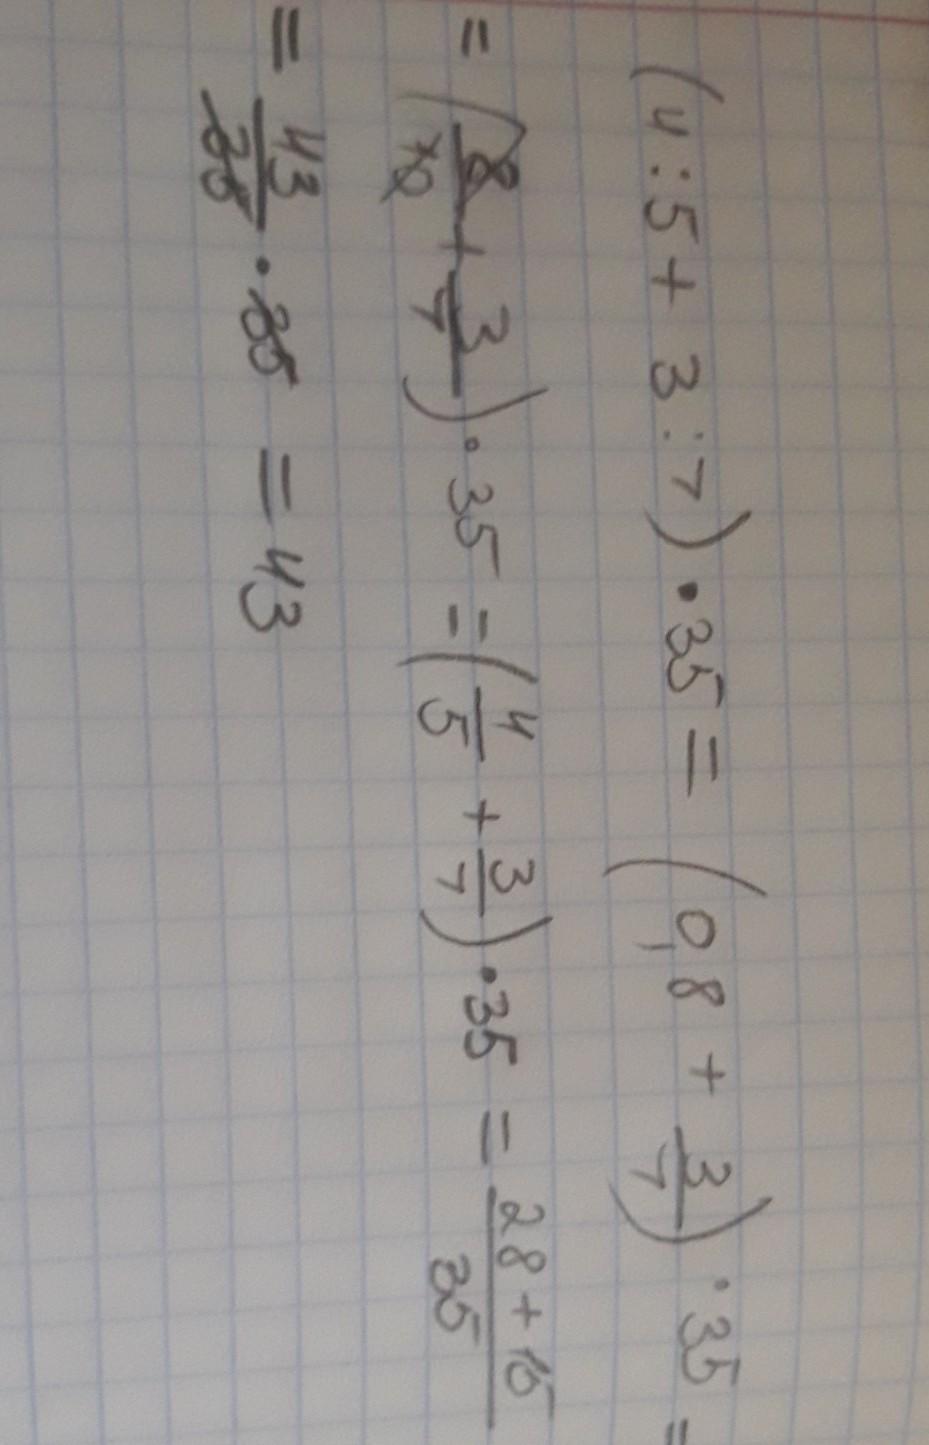 (4:5+ 3:7)·35= (0,8 + 3/7)·35 =
= (8/10 + 3/7)·35 = (4/5 + 3/7)·35 = 28+15/35
= 43/35 · 35 = 43